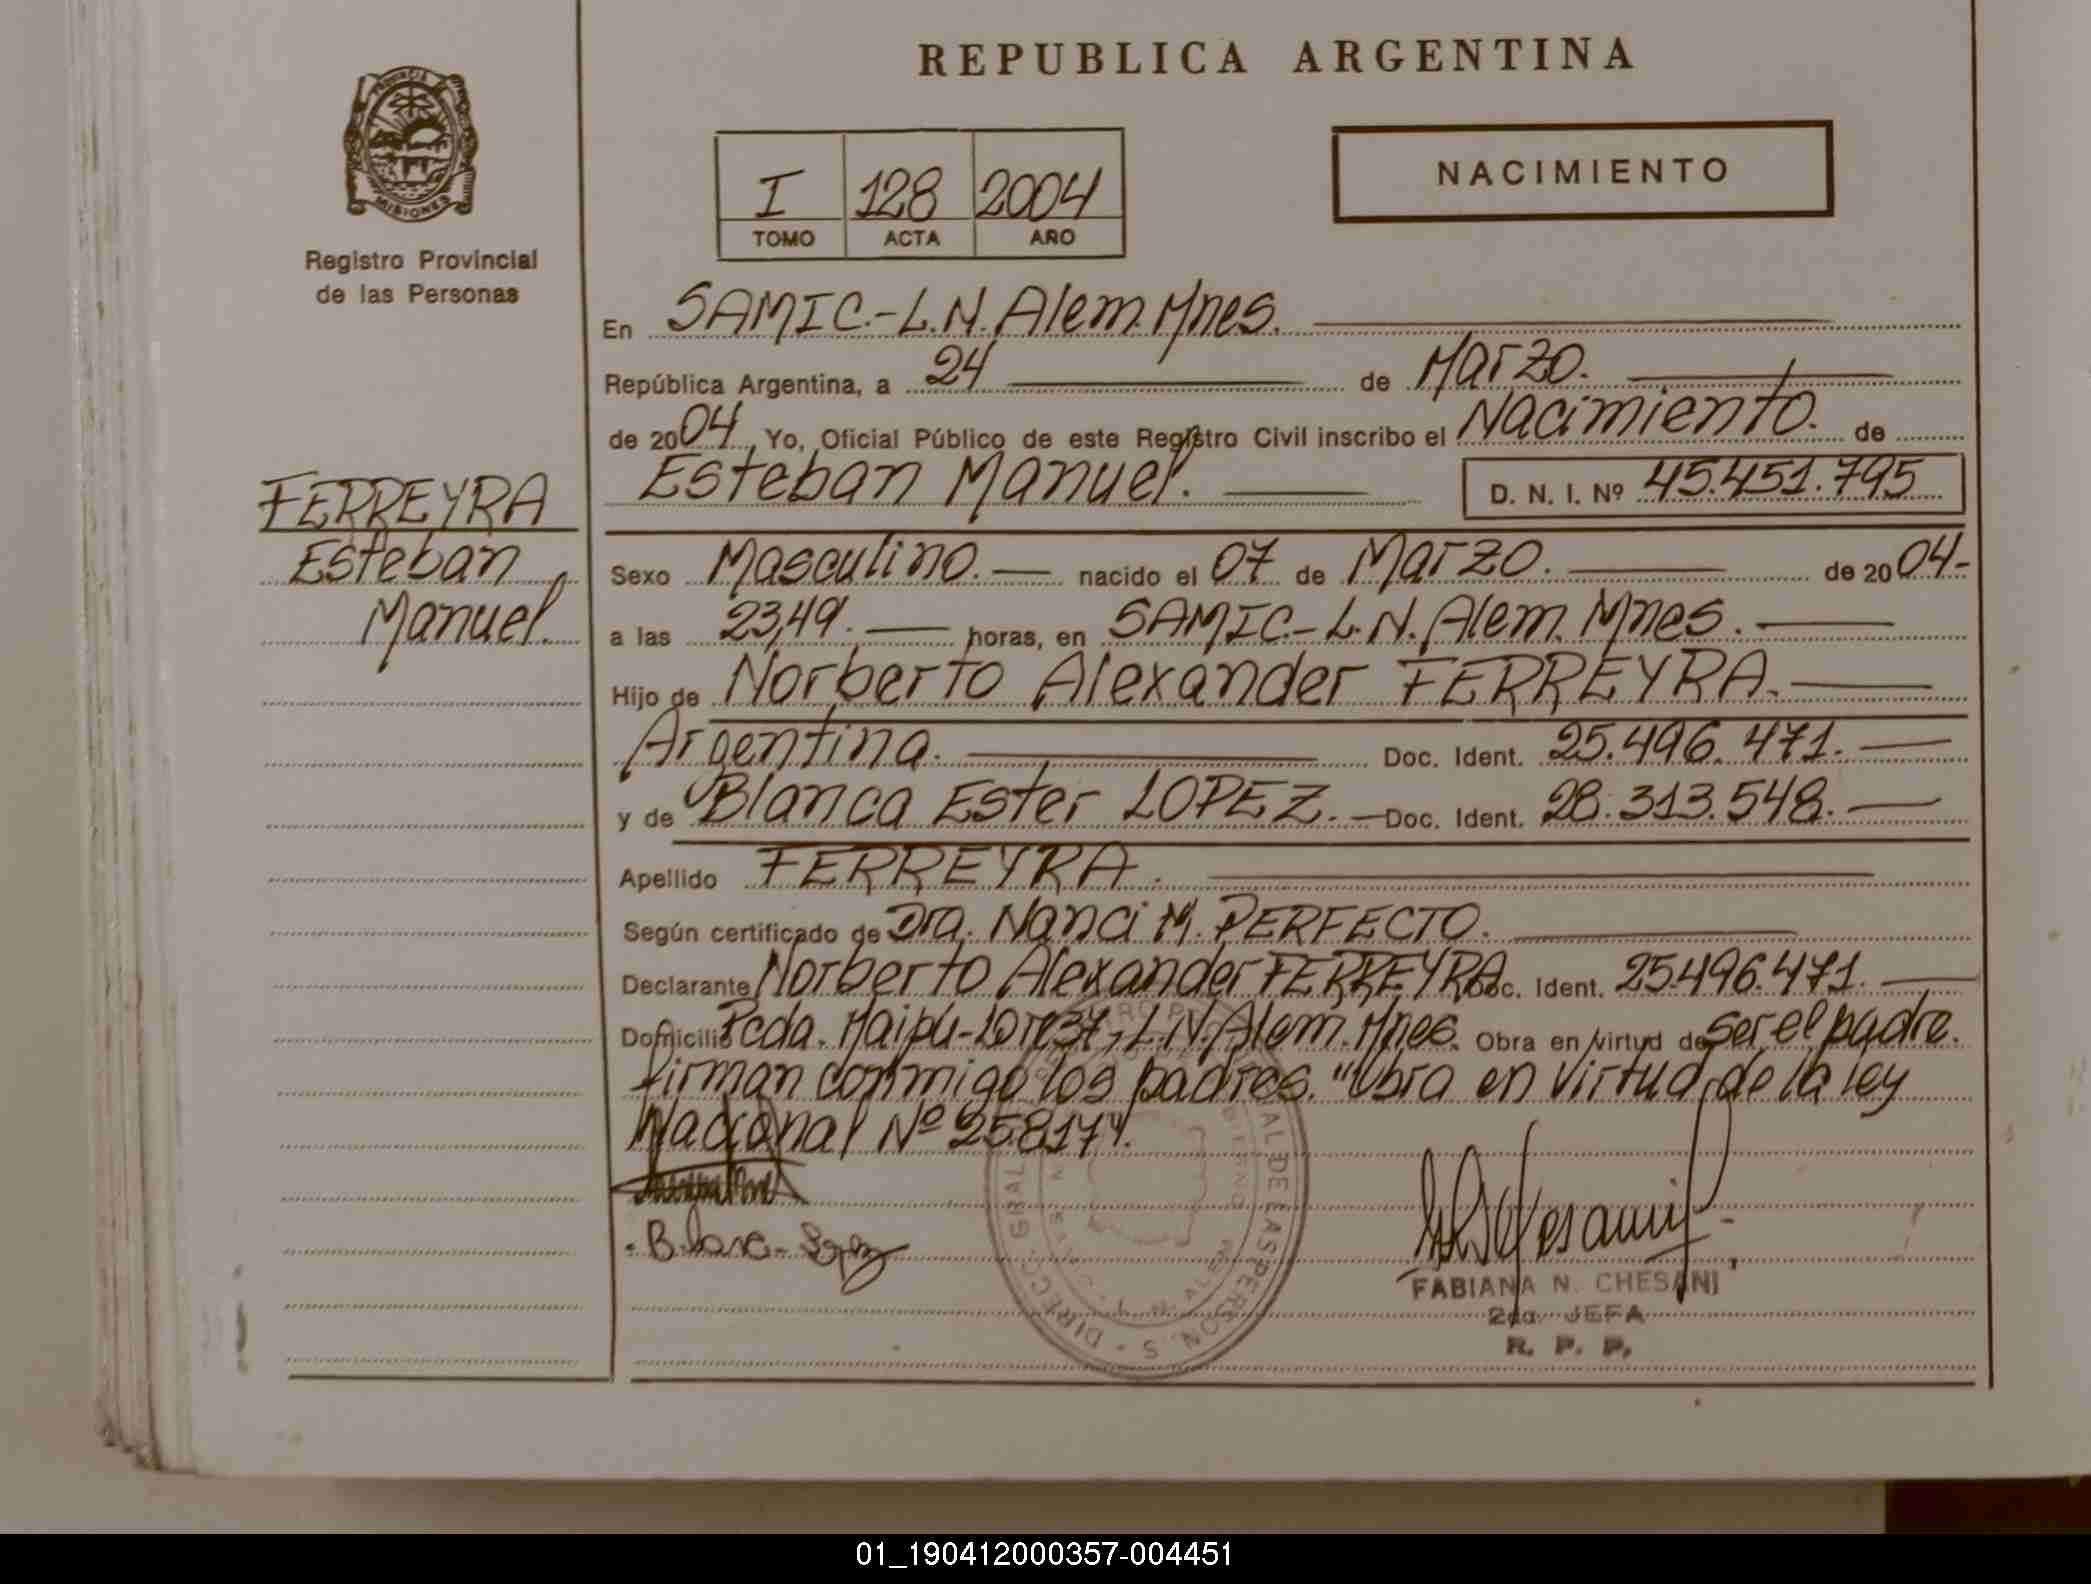 REPUBLICA ARGENTINA
PROVINCIA
MISIONES
Registro Provincial
de las Personas
I 128 2004
TOMO ACTA AÑO
NACIMIENTO
En SAMIC.-L.N. Alem. Mnes.
República Argentina, a 24 de Marzo.
de 2004 Yo, Oficial Público de este Registro Civil inscribo el Nacimiento. de
Esteban Manuel. D. N. I. Nº 45.451.795
FERREYRA
Esteban
Manuel.
Sexo Masculino. nacido el 07 de Marzo. de 2004-
a las 23,49. horas, en SAMIC.-L.N. Alem. Mnes.
Hijo de Norberto Alexander FERREYRA.
Argentina. Doc. Ident. 25.496.471.
y de Blanca Ester LOPEZ. Doc. Ident. 28.313.548.
Apellido FERREYRA.
Según certificado de Dra. Nanci M. PERFECTO.
Declarante Norberto Alexander FERREYRA Doc. Ident. 25.496.471.
Domicilio Pcda. Maipu-Lote 37, L.N. Alem. Mnes. Obra en virtud de ser el padre.
firman conmigo los padres. "Obra en virtud de la ley
Nacional Nº 25.817".
FABIANA N. CHESANI
2da. JEFA
R. P. P.
01_190412000357-004451